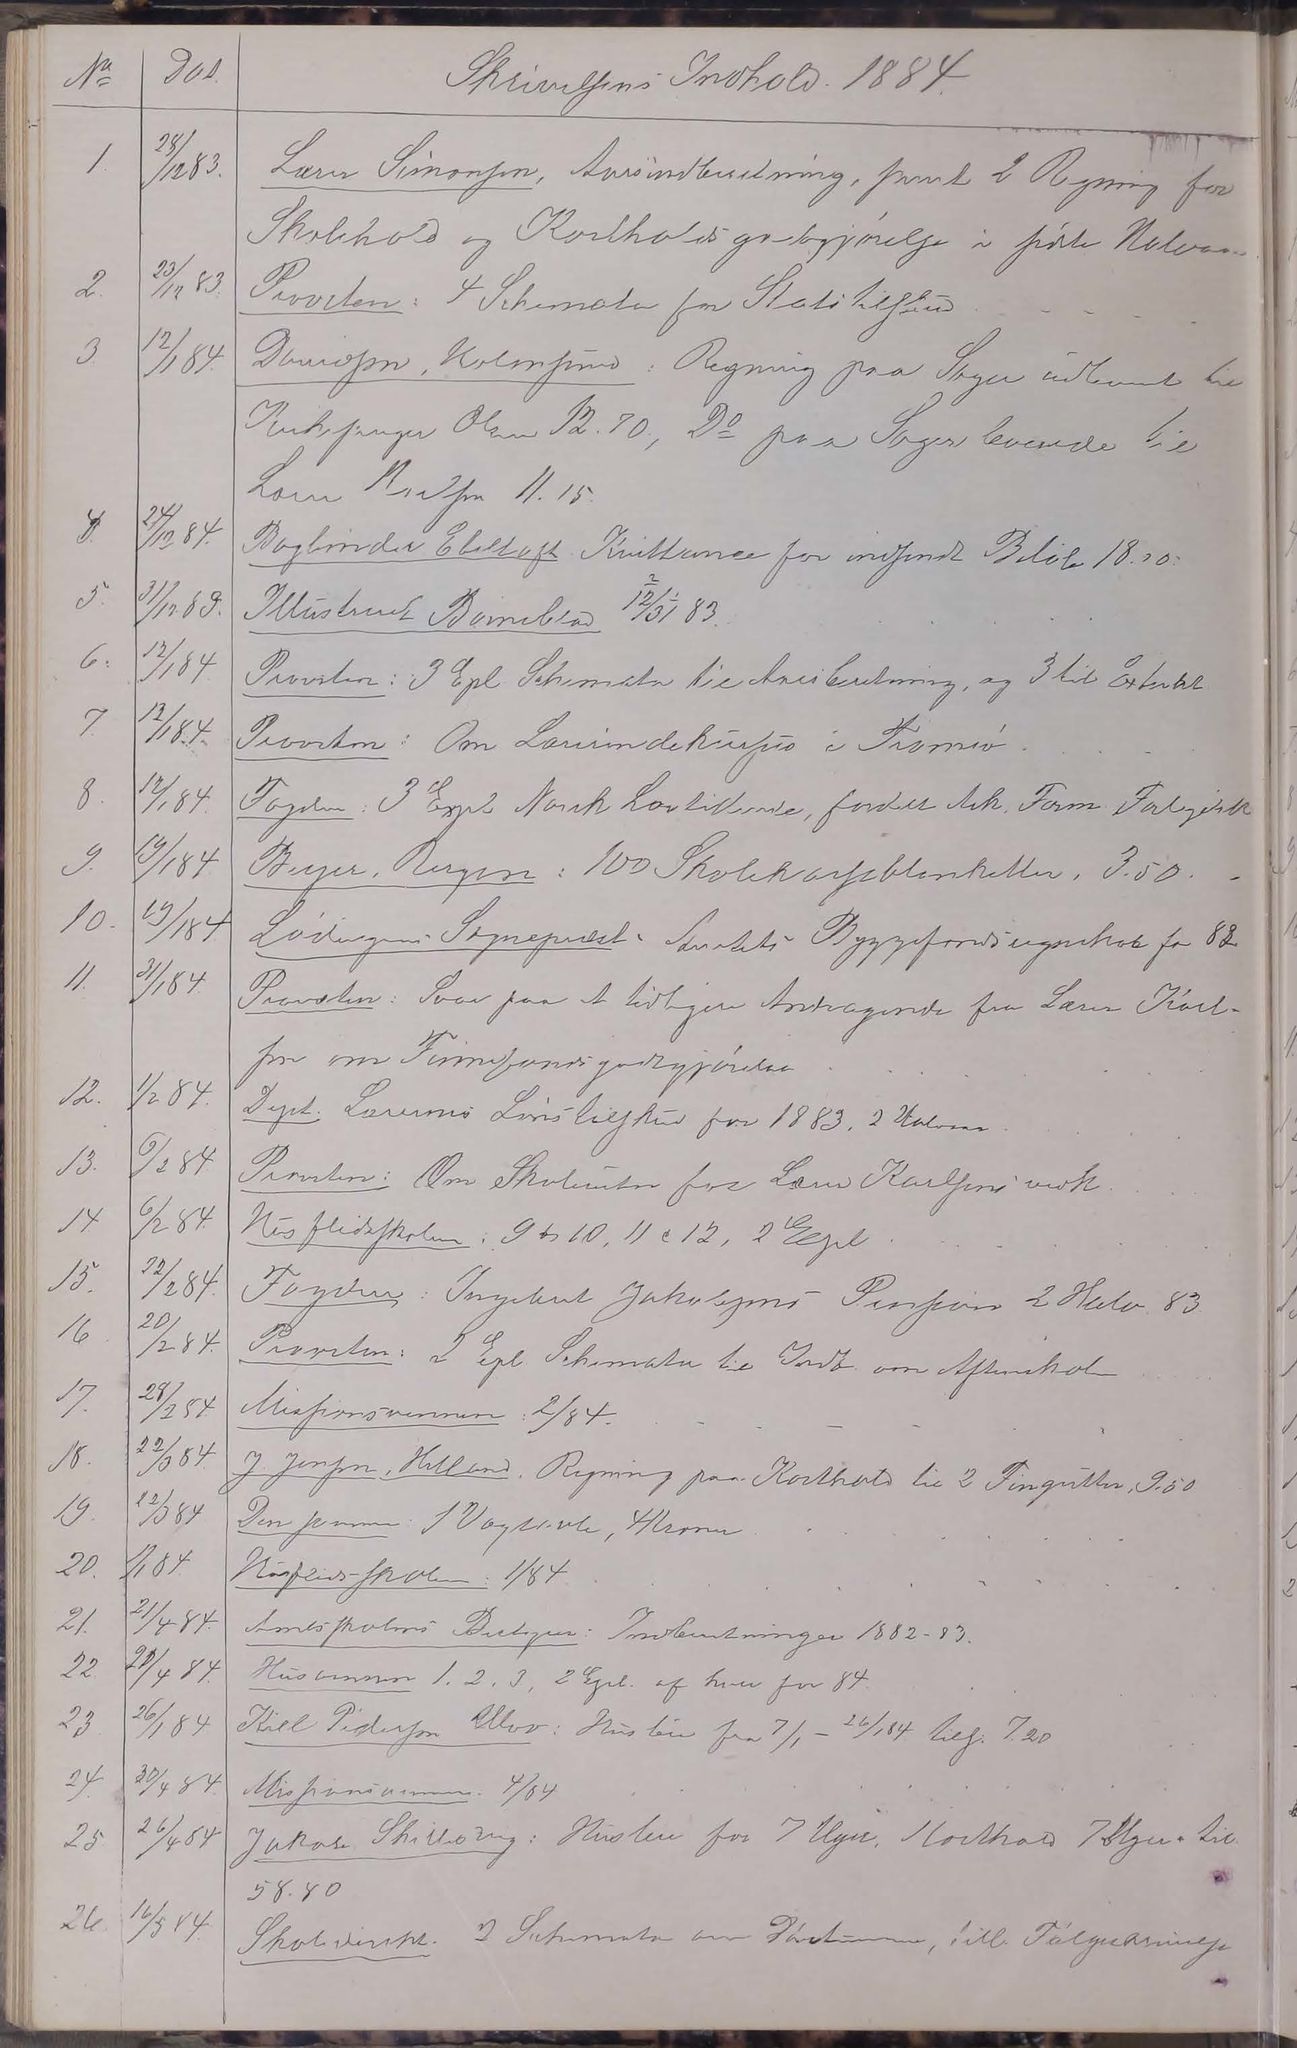 No Dat. Skrivelsens Indhold. 1884.
1. 28/12 83. Lærer Simonsen, Aarsindberetning, samt 2 Regning for
Skolehold og Kostholdsgodtgjørelse i sidste Halvaar
2. 23/12 83. Provsten: 4 Schemata for Statstilskud
3. 12/1 84. Davidsen, Holmsund: Regning paa Sager udleveret til
Kirkesanger Olsen 12.70, Do paa Sager leverede til
Lærer 11.15.
4. 24/12 84. Bogbinder Ebeltoft Kvittance for indsendt Beløb 18.20.
5. 31/12 83. Illustreret Børneblad 83.
6. 12/1 84. Provsten: 3 Expl. Schemata til Aarsberetning, og 3 til Extrakt
7. 12/1 84. Provsten: Om Lærerindekursus i Tromsø.
8. 12/1 84. Fogden: 3 Expl Norsk Lovtidende, fordelt
9. 19/1 84. Beyer, Bergen: 100 Skolekarseblanketter, 3.50.
10. 19/1 84. Lødingens Sognepræst. Byggefondsregnskab for 83
11. 31/1 84. Provsten: Svar paa et tidligere Andragende fra Lærer Karl-
sen om Finnefondsgodtgjørelse
12. 1/2 84. Dept. Lærernes Lønstilskud for 1883, 2 Halvaar
13. 6/2 84 Provsten: Om Skoleruten for Lærer Karlsens
14 6/2 84. Husflidsskolen: 9 & 10, 11 & 12, 2 Expl
15. 22/2 84. Fogden: Ingebret Jakobsens Pension 2 Halv. 83
16 20/2 84. Provsten: 2 Expl. Schemata til Indb. om Aftenskole
17. 28/2 84 Missionsvennen: 2/84.
18. 22/3 84 J. Jensen, Helland. Regning paa Kosthold til 2 Fingutter, 9.50
19. 12/3 84 Den samme: 1 Vægtavle, 4 Kroner
20. 1/1 84. Husflidsskolen: 1/84
21. 21/4 84. Amtsskolens Bestyrer: Indberetninger 1882-83.
22. 22/4 84. Husvennen 1. 2. 3, 2 Expl. af hver for 84.
23 26/1 84 Kill Pedersen: Husleie fra 7/1 - 26/1 84 tils. 7.20
24. 30/4 84. Missionsvennen. 4/84
25 26/4 84 Jakob: Husleie for 7 Uger, Kosthold 7 Uger, til
58.80
26. 16/5 84. Skoledirekt. 2 Schemata om